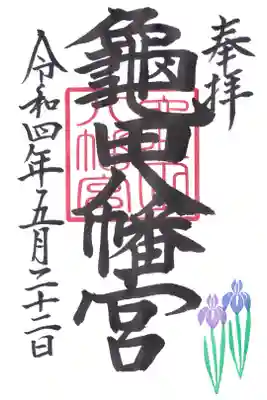 奉拝
龜田八幡宮
令和四年五月二十二日